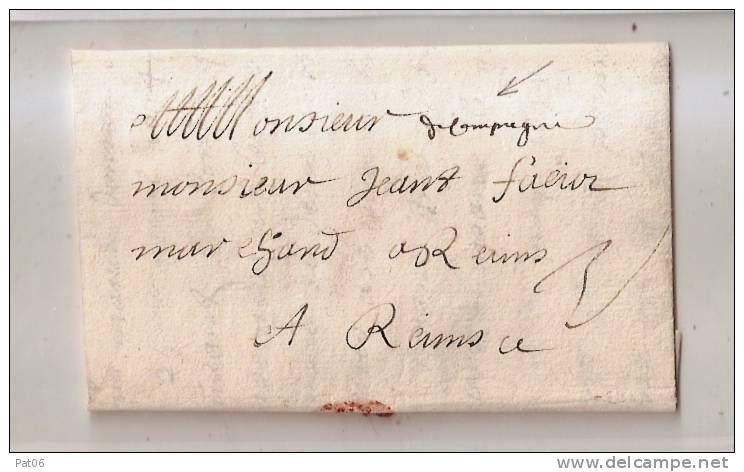 a Monsieur de Compiegne
monsieur Jean
marchand a Reims
A Reims
Pat06
www.delcampe.net